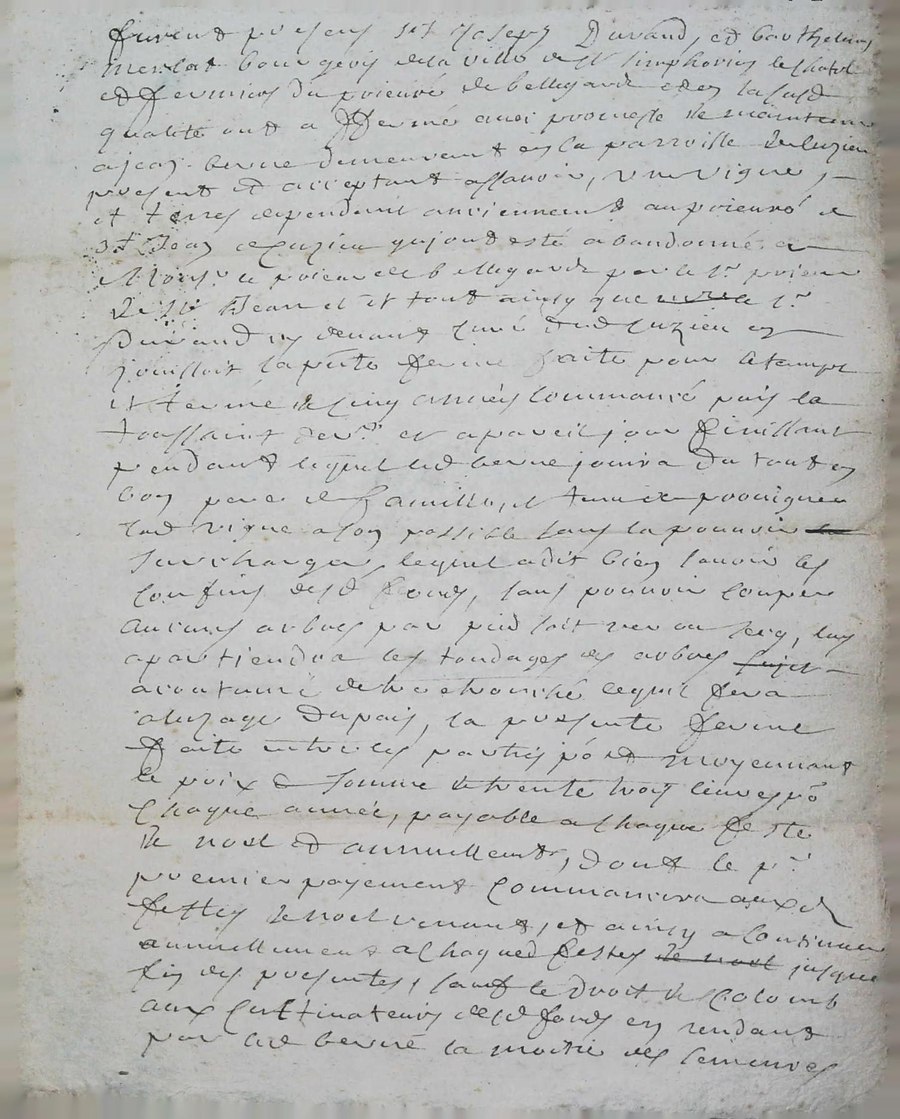 furent presens srs Joseph Durand, et Barthelemy
Merlat bourgeois de la ville de St Simphorien le Chatel
et fermiers du prieuré de bellegarde et en la susd
qualité ont affermé avec promesse de maintenir
a jean berne demeurant en la parroisse de luzieu
present et acceptant assavoir, une vigne,
et terres dependant anciennement au prieuré de
St Jean
a Monsr le prieur de bellegarde par le sr prieur
de St Jean et et tout ainsy que le sr
Durand cy devant curé dud luzieu en
jouissoit la pnte ferme faite pour le temps
et terme de cinq années commancé puis la
toussaint derre et a pareil jour finissant
pendant lequel led berne jouira du tout en
bon pere de famille, et provigner
lad vigne a son possible sans la pouvoir
surcharger, lequel a dit bien savoir les
confins desd fonds, sans pouvoir couper
aucuns arbres par pied soit ver ou secq, luy
apartiendra les tondages des arbres
acoutumé lequel fera
a l'uzage du pais, la presente ferme
faite entre les parties moyennant
le prix & somme de trente trois livres po
chaque année, payable a chaque feste
de noel et annuellemt, dont le pr
premier payement commancera aux
festes de noel venant, et ainsy a continuer
annuellement a chaque d festes de noel jusque
fin des presentes, sauf le droit de colomb
aux cultivateurs desd fonds en rendant
par led berne la moitié des semences